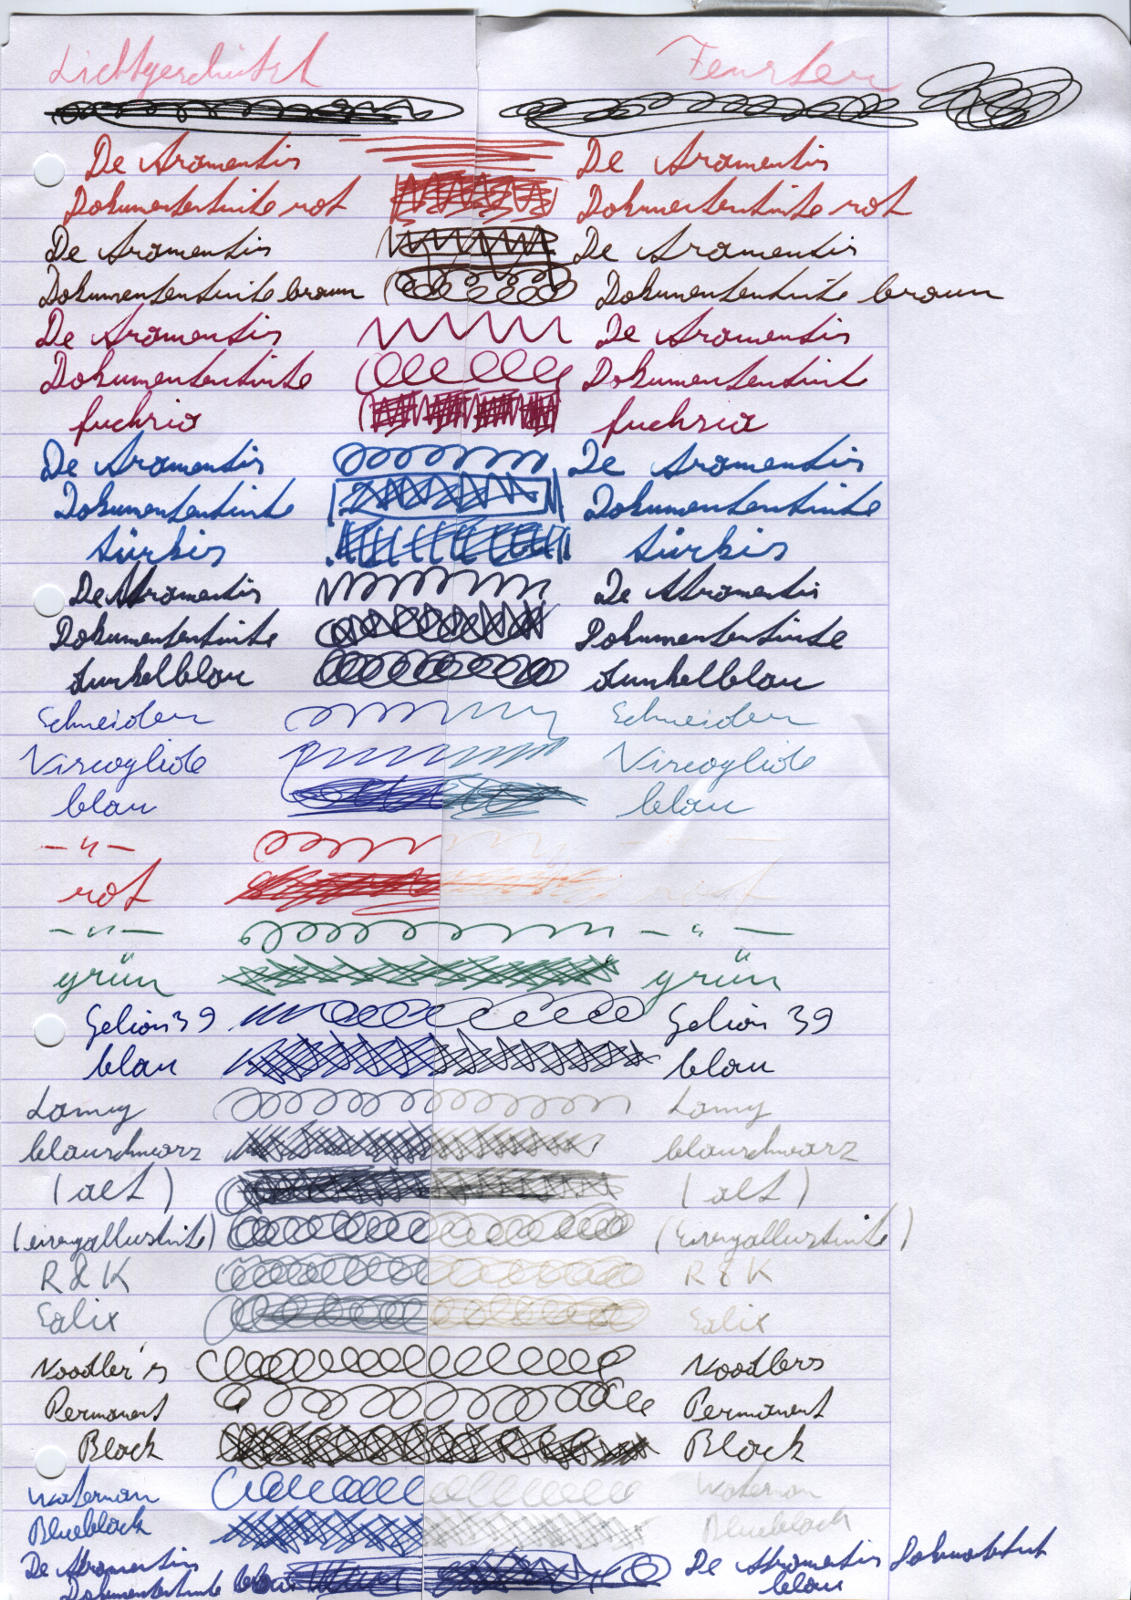 Lichtgeschützt Fenster
De Atramentis De Atramentis
Dokumententinte rot Dokumententinte rot
De Atramentis De Atramentis
Dokumententinte braun Dokumententinte braun
De Atramentis De Atramentis
Dokumententinte Dokumententinte
fuchsia fuchsia
De Atramentis De Atramentis
Dokumententinte Dokumententinte
türkis türkis
De Atramentis De Atramentis
Dokumententinte Dokumententinte
dunkelblau dunkelblau
Schneider Schneider
Viscoglide Viscoglide
blau blau
- " -
rot rot
- " - - " -
grün grün
Gelion 39 Gelion 39
blau blau
Lamy Lamy
blauschwarz blauschwarz
(alt) (alt)
(eisengallustinte) (eisengallustinte)
R & K R & K
Salix Salix
Noodler's Noodlers
Permanent Permanent
Black Black
Waterman Waterman
Blueblack Blueblack
De Atramentis De Atramentis Dokumententinte
Dokumententinte blau blau